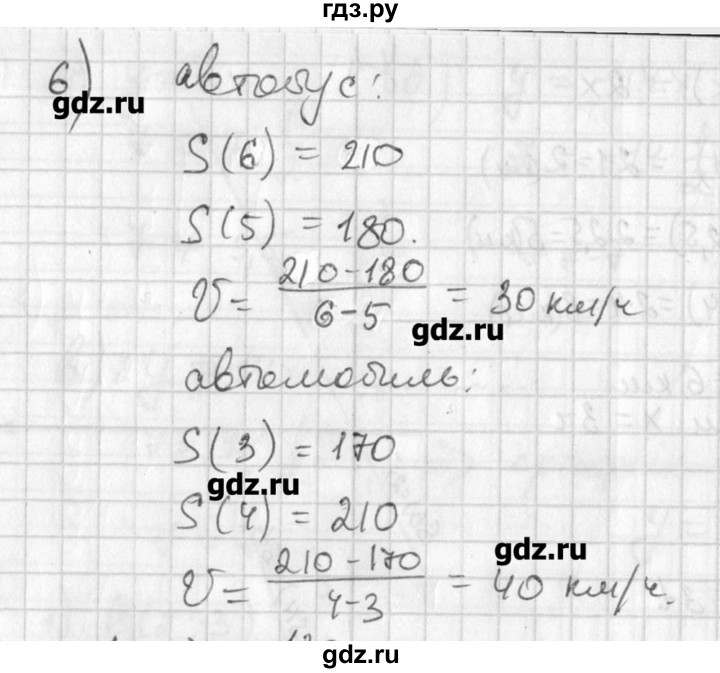 гдз.ру
6) автобус:
gdz.ru
S(6) = 210
S(5) = 180.
V = (210-180)/(6-5) = 30 км/ч
gdz.ru
автомобиль:
S(3) = 170
gdz.ru
S(4) = 210
gdz.ru
V = (210-170)/(4-3) = 40 км/ч.
gdz.ru